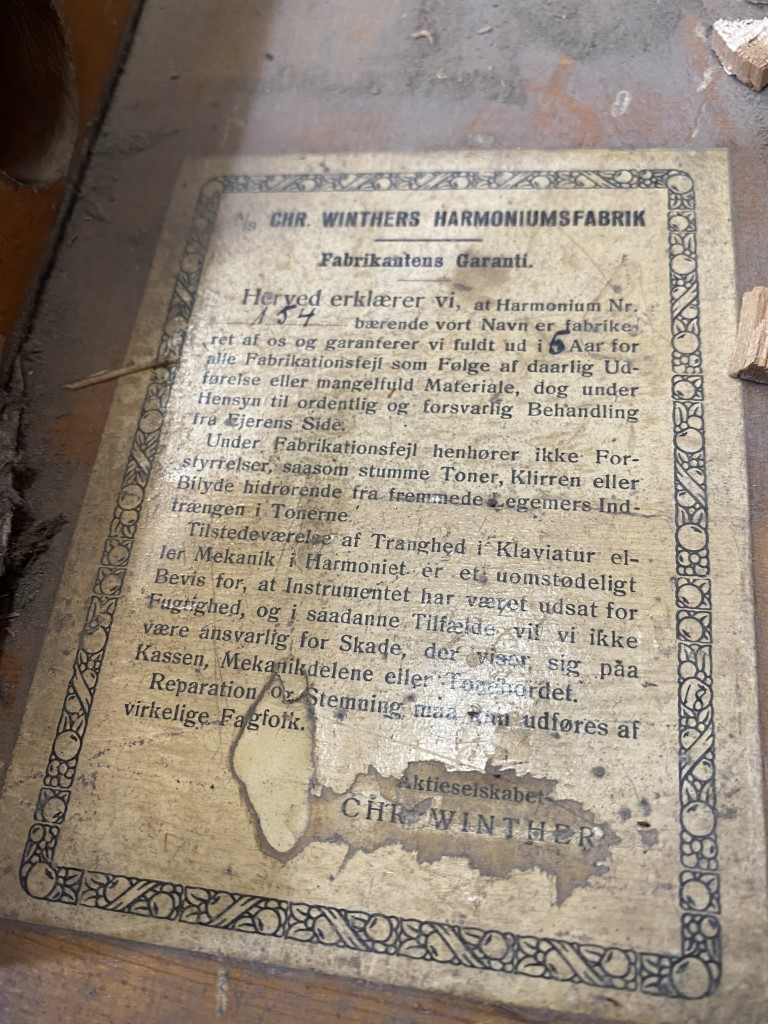 A/S CHR. WINTHERS HARMONIUMSFABRIK
Fabrikantens Garanti.
Herved erklærer vi, at Harmonium Nr.
154 bærende vort Navn er fabrike-
ret af os og garanterer vi fuldt ud i 5 Aar for
alle Fabrikationsfejl som Følge af daarlig Ud-
førelse eller mangelfuld Materiale, dog under
Hensyn til ordentlig og forsvarlig Behandling
fra Ejerens Side.
Under Fabrikationsfejl henhører ikke For-
styrrelser, saasom stumme Toner, Klirren eller
Bilyde hidrørende fra fremmede Legemers Ind-
trængen i Tonerne.
Tilstedeværelse af Tranghed i Klaviatur el-
ler Mekanik i Harmoniet er et uomstødeligt
Bevis for, at Instrumentet har været udsat for
Fugtighed, og i saadanne Tilfælde vil vi ikke
være ansvarlig for Skade, der viser sig paa
Kassen, Mekanikdelene eller Tonebordet.
Reparation og Stemning maa kun udføres af
virkelige Fagfolk.
Aktieselskabet
CHR. WINTHER